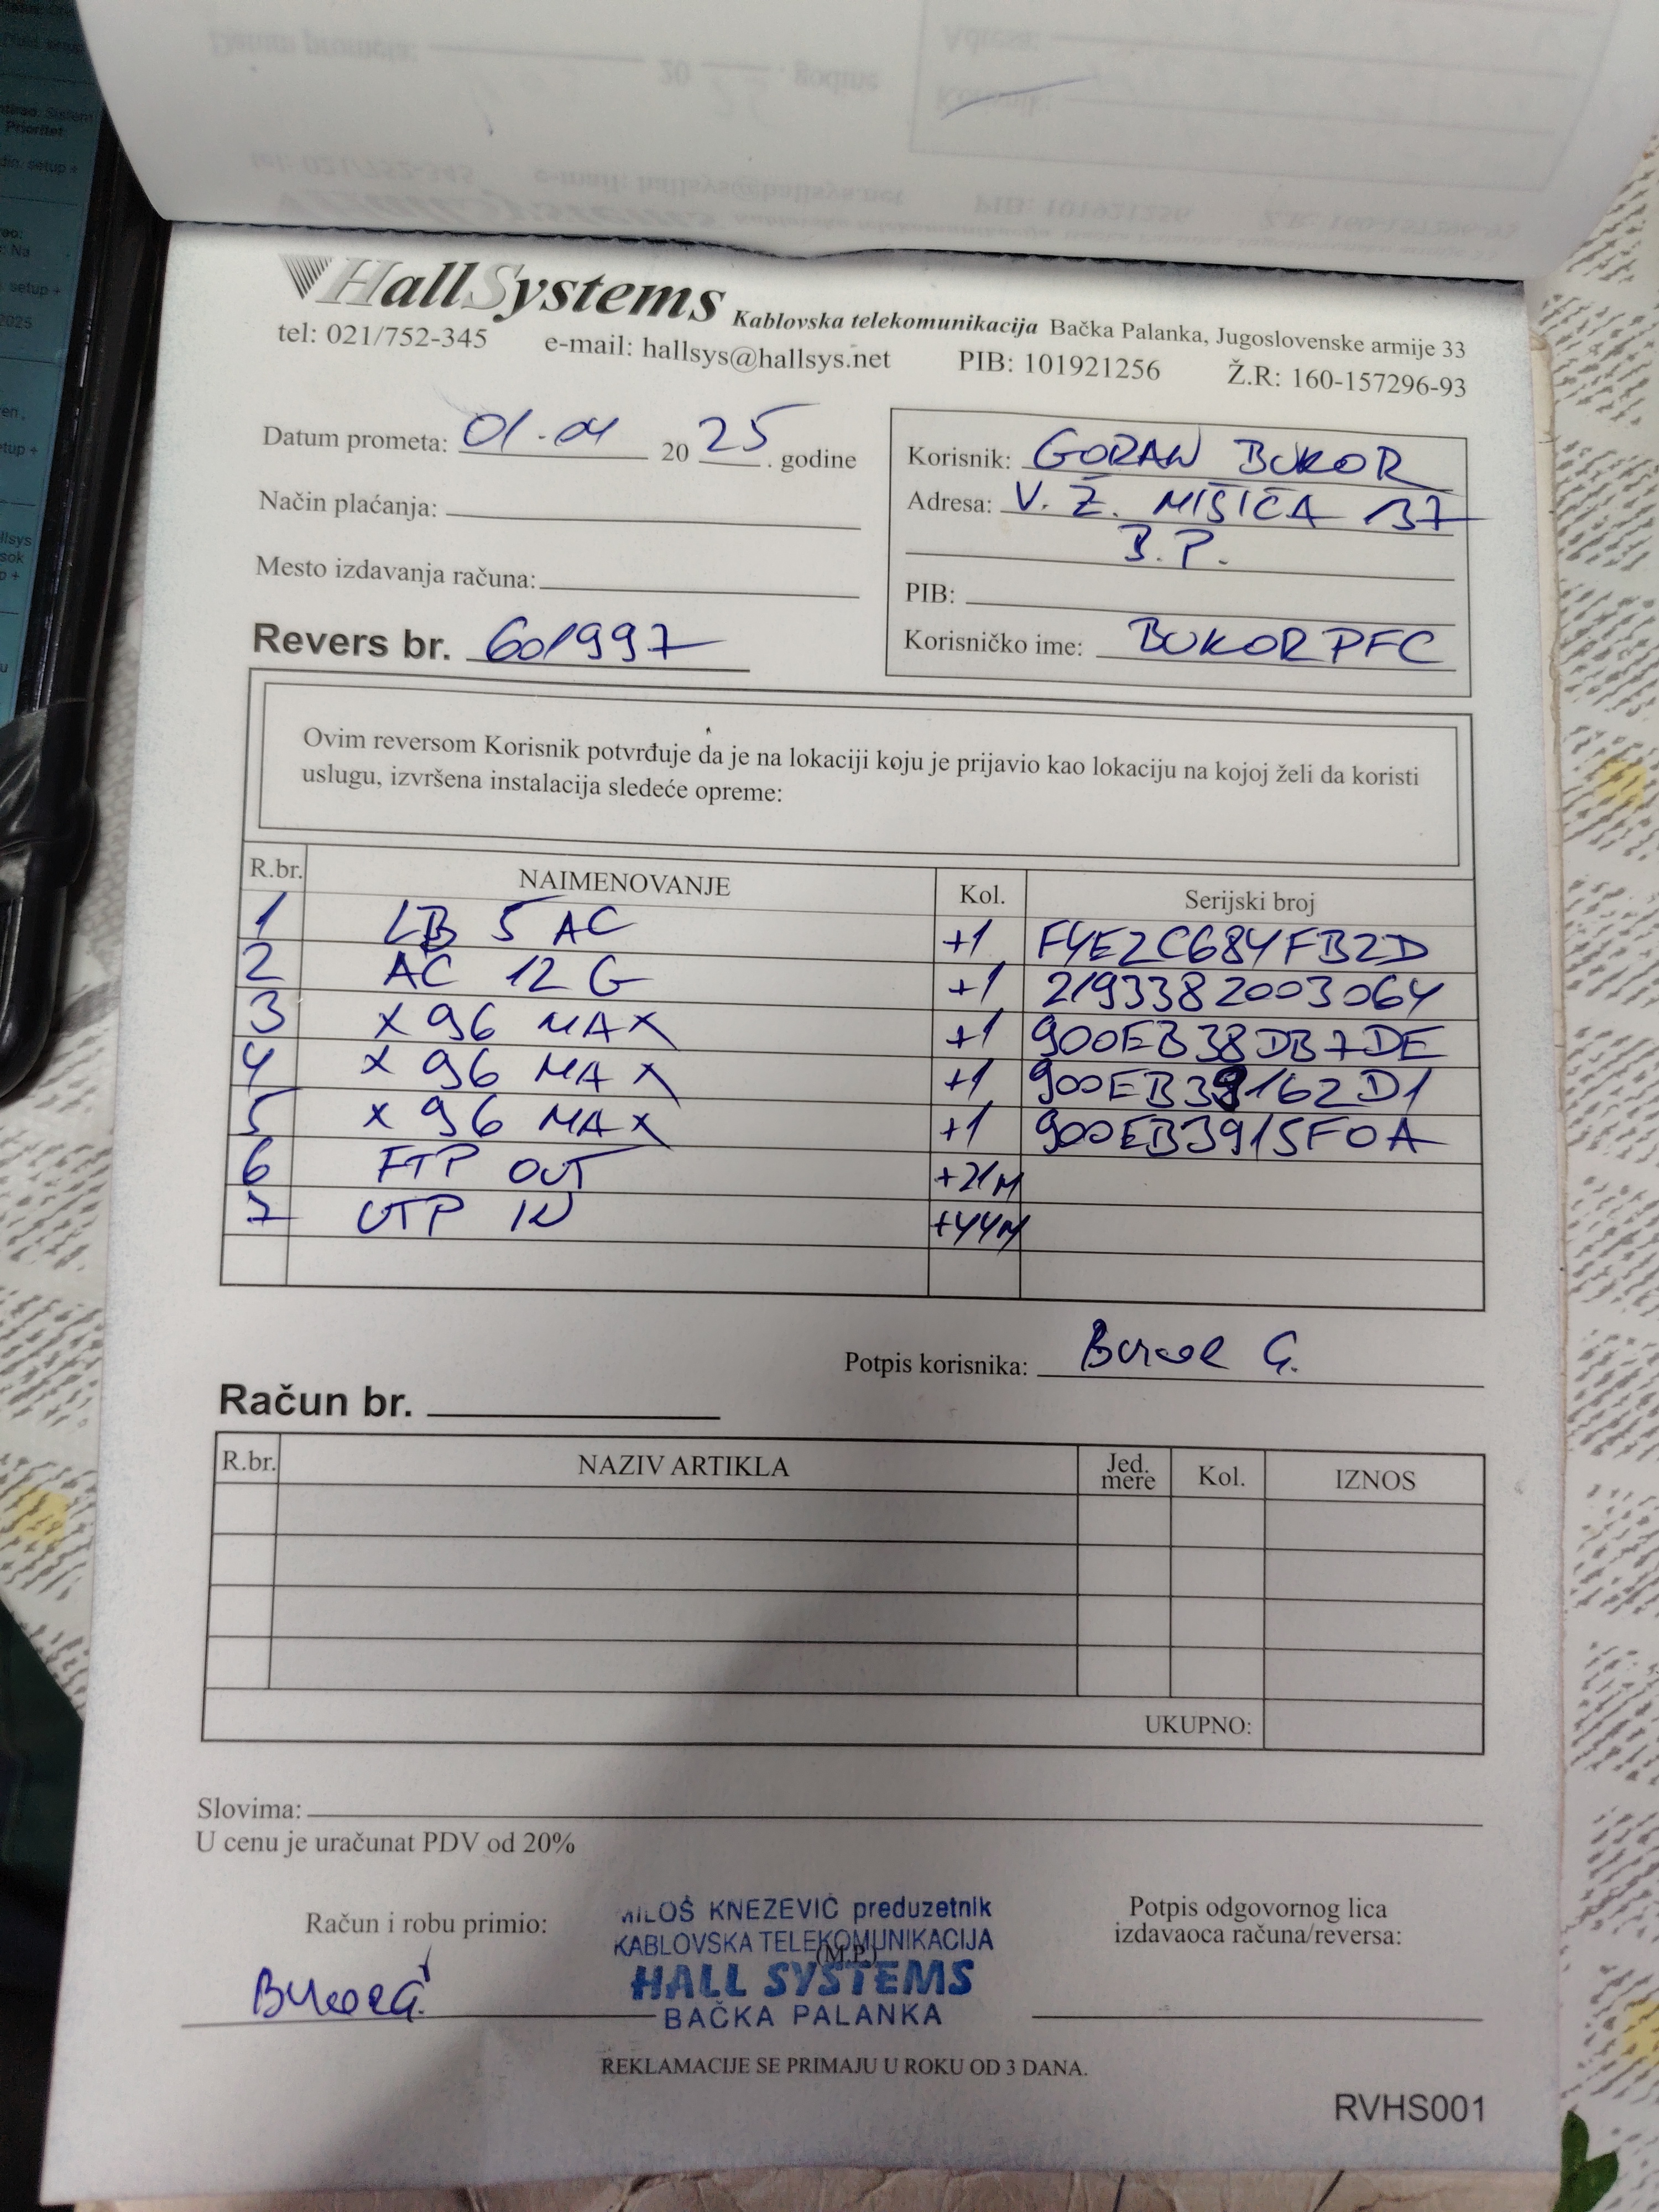 HallSystems Kablovska telekomunikacija Bačka Palanka, Jugoslovenske armije 33
tel: 021/752-345 e-mail: hallsys@hallsys.net PIB: 101921256 Ž.R: 160-157296-93
Datum prometa: 01.04 2025. godine
Način plaćanja:
Mesto izdavanja računa:
Revers br. 601997
Korisnik: GORAN BUKOR
Adresa: V. Ž. MIŠIĆA 137
B.P.
PIB:
Korisničko ime: BUKORPFC
Ovim reversom Korisnik potvrđuje da je na lokaciji koju je prijavio kao lokaciju na kojoj želi da koristi
uslugu, izvršena instalacija sledeće opreme:
R.br. NAIMENOVANJE Kol. Serijski broj
1 LB 5 AC +1 F4E2C684FB2D
2 AC 12 G +1 2193382003064
3 X 96 MAX +1 900EB38DB7DE
4 X 96 MAX +1 900EB39162D1
5 X 96 MAX +1 900EB3915F0A
6 FTP OUT +21M
7 UTP IN +44M
Potpis korisnika: Bukor G.
Račun br.
R.br. NAZIV ARTIKLA Jed. mere Kol. IZNOS
UKUPNO:
Slovima:
U cenu je uračunat PDV od 20%
Račun i robu primio:
Bukor G.
MILOŠ KNEZEVIĆ preduzetnik
KABLOVSKA TELEKOMUNIKACIJA
(M.P.)
HALL SYSTEMS
BAČKA PALANKA
Potpis odgovornog lica
izdavaoca računa/reversa:
REKLAMACIJE SE PRIMAJU U ROKU OD 3 DANA.
RVHS001